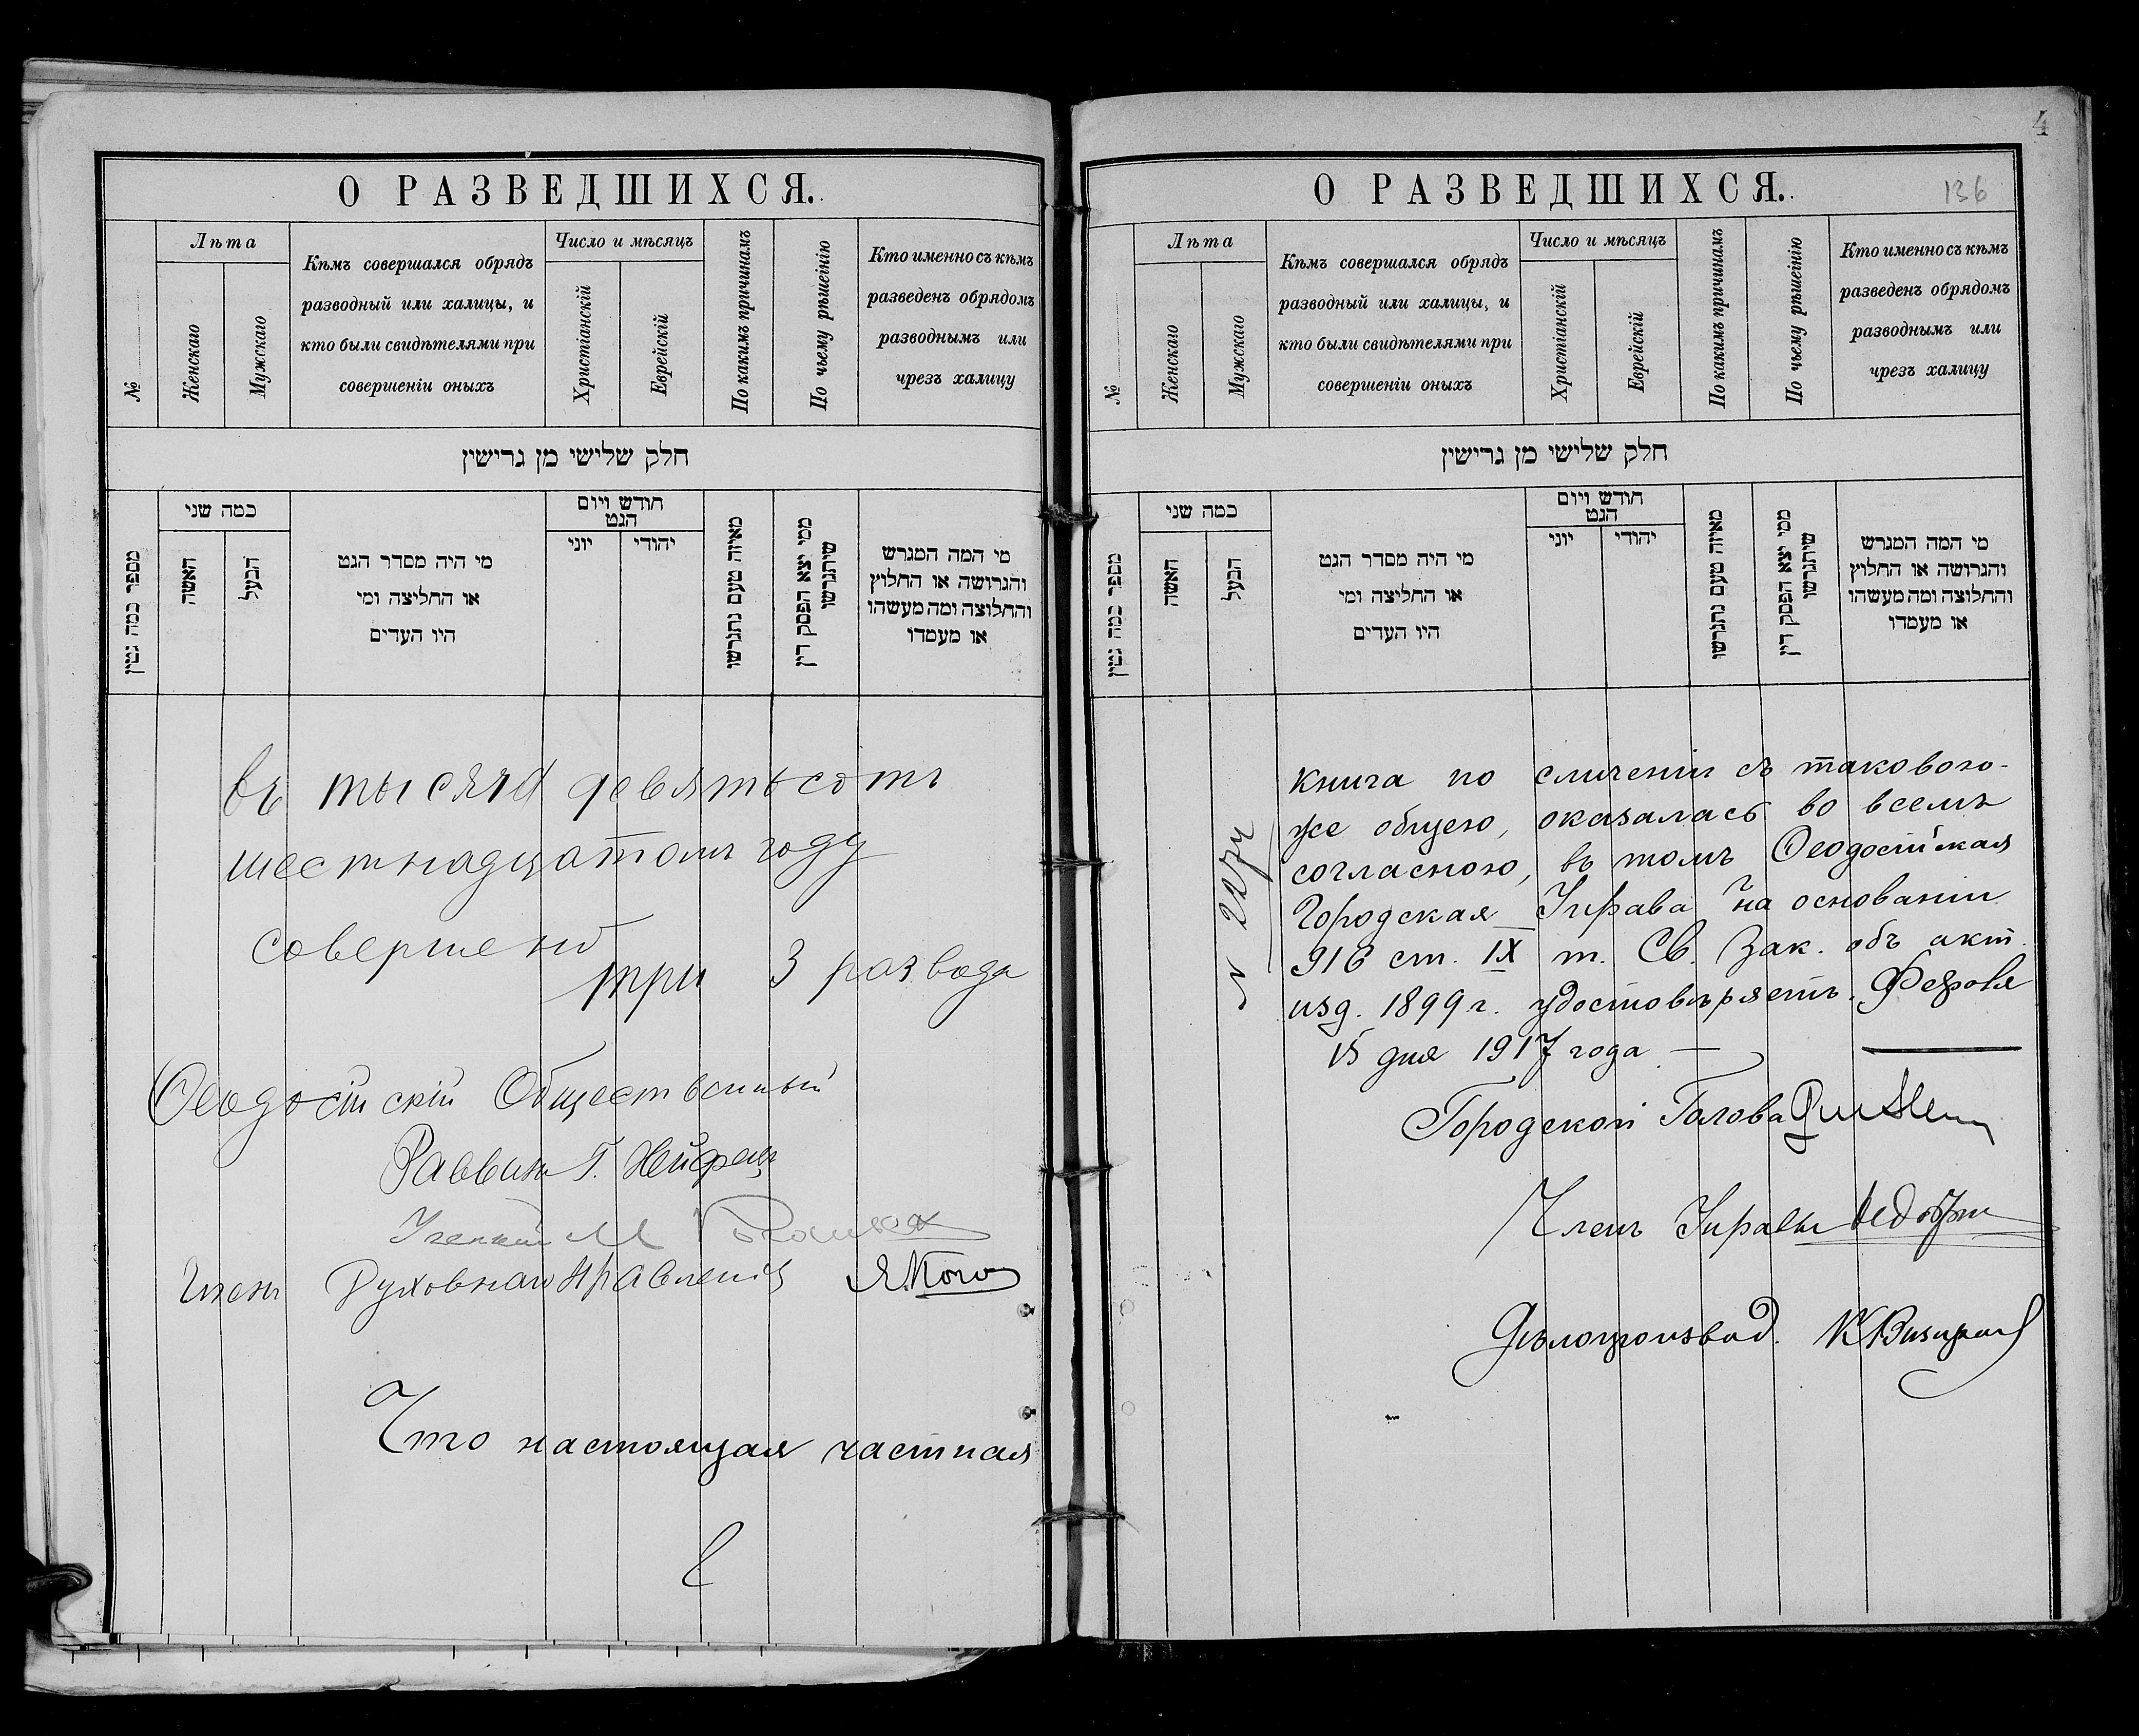 О РАЗВЕДШИХСЯ.
№
Лѣта
Женскаго
Мужскаго
Кѣмъ совершался обрядъ
разводный или халицы, и
кто были свидѣтелями при
совершеніи оныхъ
Число и мѣсяцъ
Христіанскій
Еврейскій
По какимъ причинамъ
По чьему рѣшенію
Кто именно съ кѣмъ
разведенъ обрядомъ
разводнымъ или
чрезъ халицу
חלק שלישי מן גרישין
מספר כמה גטין
כמה שני
האשה
הבעל
מי היה מסדר הגט
או החליצה ומי
היו העדים
חודש ויום
הגט
יוני
יהודי
מאיזה טעם נתגרשו
ממי יצא הפסק דין
שיתגרשו
מי המה המגרש
והגרושה או החלוץ
והחלוצה ומה מעשהו
או מעמדו
въ тысяча девятьсотъ
шестнадцатомъ году
совершено
три 3 развода
Ѳеодосійскій Общественный
Раввинъ Г.
Ученый М
Членъ Духовнаго Правленія
Что настоящая частная
4
О РАЗВЕДШИХСЯ.
136
№
Лѣта
Женскаго
Мужскаго
Кѣмъ совершался обрядъ
разводный или халицы, и
кто были свидѣтелями при
совершеніи оныхъ
Число и мѣсяцъ
Христіанскій
Еврейскій
По какимъ причинамъ
По чьему рѣшенію
Кто именно съ кѣмъ
разведенъ обрядомъ
разводнымъ или
чрезъ халицу
חלק שלישי מן גרישין
מספר כמה גטין
כמה שני
האשה
הבעל
מי היה מסדר הגט
או החליצה ומי
היו העדים
חודש ויום
הגט
יוני
יהודי
מאיזה טעם נתגרשו
ממי יצא הפסק דין
שיתגרשו
מי המה המגרש
והגרושה או החלוץ
והחלוצה ומה מעשהו
או מעמדו
книга по сличеніи съ таковою-
же общею, оказалась во всемъ
согласною, въ томъ Ѳеодосійская
Городская Управа на основаніи
916 ст. IX т. Св. Зак. объ акт.
изд. 1899 г. удостовѣряетъ. Февраля
15 дня 1917 года
Городской Голова
Членъ Управы
Дѣлопроизвод.